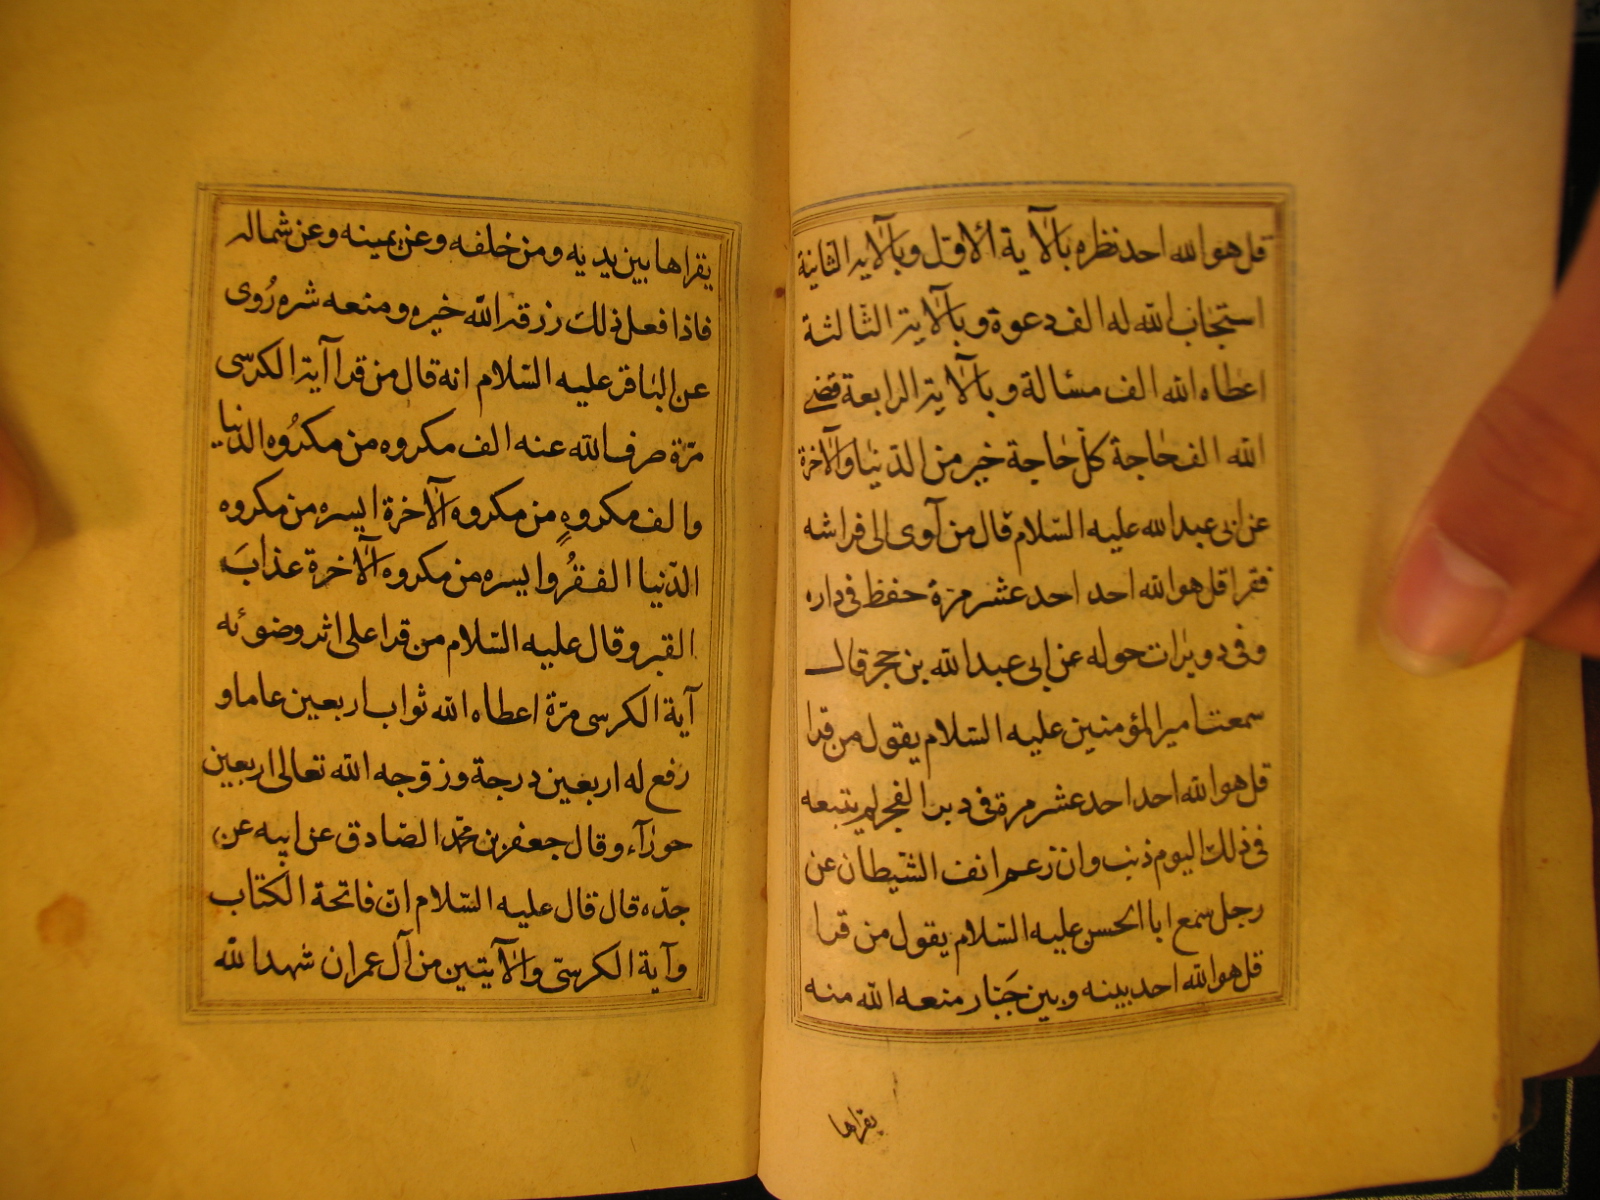 قل هو الله احد نظره بالآية الاول وبالآية الثانية
استجاب الله له الف دعوة وبالآية الثالثة
اعطاه الله الف مسالة وبالآية الرابعة قضى
الله الف حاجة كلّ حاجة خير من الدّنيا والآخرة
عن ابى عبد الله عليه السّلام قال من آوى الى فراشه
فقرا قل هو الله احد احد عشر مرّة حفظ فى داره
وفى دويرات حوله عن ابى عبد الله بن حجر قال
سمعت امير المؤمنين عليه السّلام يقول من قرا
قل هو الله احد احد عشر مرة فى دبر الفجر لم يتبعه
فى ذلك اليوم ذنب وان زعم انف الشّيطان عن
رجل سمع ابا الحسن عليه السّلام يقول من قرا
قل هو الله احد بينه وبين جَبّار منعه الله منه
يقراها
يقراها بين يديه ومن خلفه وعن يمينه وعن شماله
فاذا فعل ذلك رزقه الله خيره ومنعه شره رُوى
عن الباقر عليه السّلام انه قال من قرا آية الكرسى
مرّة صرف الله عنه الف مكروه من مكرُوه الدّنيا
والف مكروهٍ من مكروه الآخرة ايسره من مكروه
الدّنيا الفقرُ وايسره من مكروه الآخرة عذابَ
القبر وقال عليه السّلام من قرا على اثر وضوئه
آية الكرسى مرّة اعطاه الله ثواب اربعين عاما و
رفع له اربعين درجة وزوّجه الله تعالى اربعين
حورآء وقال جعفر بن محمّد الصّادق عن ابيه عن
جدّه قال قال عليه السّلام انّ فاتحة الكتاب
وآية الكرسىّ والآيتين من آل عمران شهد الله